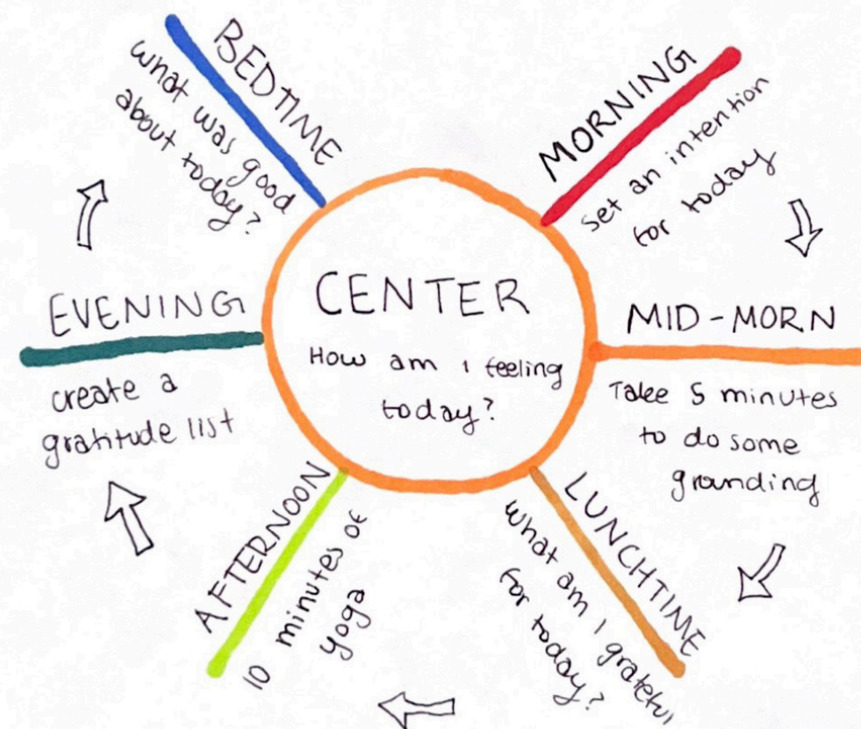 CENTER
How am I feeling
today?
MORNING
Set an intention
for today
MID-MORN
Take 5 minutes
to do some
grounding
LUNCHTIME
What am I grateful
for today?
AFTERNOON
10 minutes of
yoga
EVENING
create a
gratitude list
BEDTIME
what was good
about today?